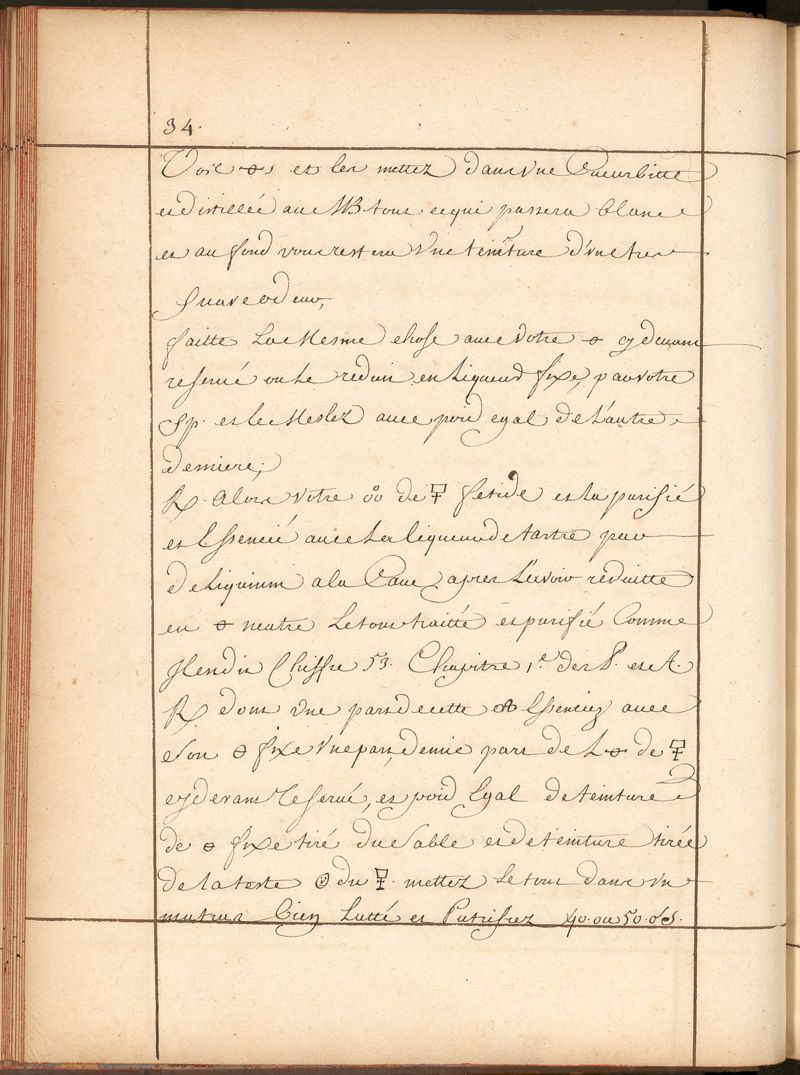 34.
🜔s et les mettez dans une Cucurbitte
et distillée au MB. tout ce qui passera blanc
et au fond vous restera une teinture d'une tres
suave odeur,
faitte La Mesme chose avec votre 🜔 cy devant
reservé ou Le reduire en Liqueur fixe, par votre
Sp. et le Meslez avec poid egal de L'autre
derniere;
R. alors votre de 🜿 fetide et la purifié
et Essencié avec Les liqueurs de tartre par
deliquium a la Cave, apres L'avoir reduitte
en 🜔 neutre Le tout traitté et purifié Comme
Il en dit Chiffre 53. Chapitre 1.er des P. et A.
R donc une part de cette Essenciez avec
son 🜔 fixe une part, demie part de L 🜔 de 🜿
cy devant Reservé, et poid Egal de teinture
de 🜔 fixe tiré du Sable et de teinture tirée
de la teste du 🜿. mettez Le tout dans un
matras bien Lutté et Putrifiez 40. ou 50.